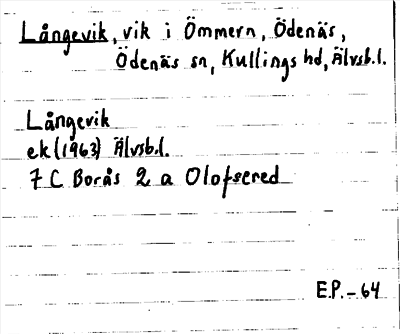 Långevik, vik i Ömmern, Ödenäs,
Ödenäs sn, Kullings hd, Älvsb.l.
Långevik
ek (1963) Älvsb.l.
7 C Borås 2 a Olofsered
E.P. - 64